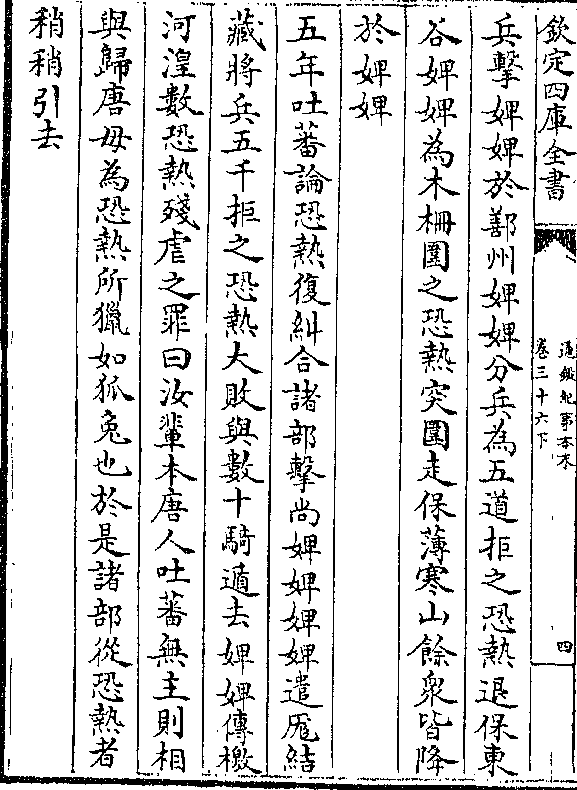 欽定四庫全書
通鑑紀事本末
卷三十六下
四
兵擊婢婢於鄯州婢婢分兵為五道拒之恐熱退保東
谷婢婢為木柵圍之恐熱突圍走保薄寒山餘衆皆降
於婢婢
五年吐蕃論恐熱復糾合諸部擊尚婢婢婢婢遣厖結
藏將兵五千拒之恐熱大敗與數十騎遁去婢婢傳檄
河湟數恐熱殘虐之罪曰汝輩本唐人吐蕃無主則相
與歸唐毋為恐熱所獵如狐兔也於是諸部從恐熱者
稍稍引去